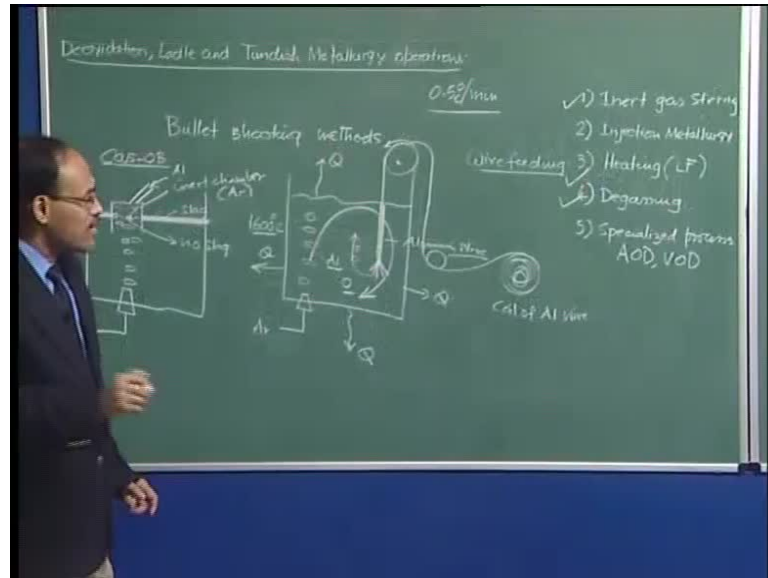 Deoxidation, Ladle and Tundish Metallurgy operations
0.5°C/min
Bullet shooting methods
CAS-OB
Al
inert chamber
(Ar)
Slag
no slag
1600°C
Q
Q
Q
Q
Al
O
Ar
Aluminum Wire
Coil of Al wire
Wire feeding
1) Inert gas Stirring
2) Injection Metallurgy
3) Heating (LF)
4) Degassing
5) Specialized process
AOD, VOD